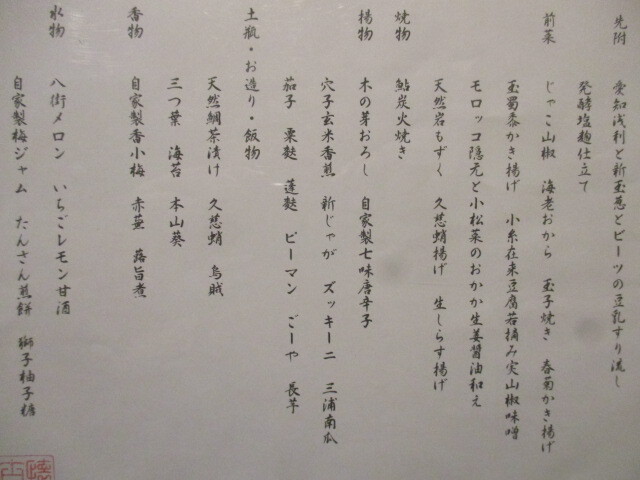 先附　愛知浅利と新玉葱とビーツの豆乳すり流し
発酵塩麹仕立て
前菜　じゃこ山椒　海老おから　玉子焼き　春菊かき揚げ
玉蜀黍かき揚げ　小糸在来豆腐若摘み実山椒味噌
モロッコ隠元と小松菜のおかか生姜醤油和え
天然岩もずく　久慈蛸揚げ　生しらす揚げ
焼物　鮎炭火焼き
揚物　木の芽おろし　自家製七味唐辛子
穴子玄米香煎　新じゃが　ズッキーニ　三浦南瓜
茄子　粟麩　蓬麩　ピーマン　ごーや　長芋
土瓶・お造り・飯物
天然鯛茶漬け　久慈蛸　烏賊
三つ葉　海苔　本山葵
香物　自家製香小梅　赤蕪　蕗旨煮
水物　八街メロン　いちごレモン甘酒
自家製梅ジャム　たんさん煎餅　獅子柚子糖